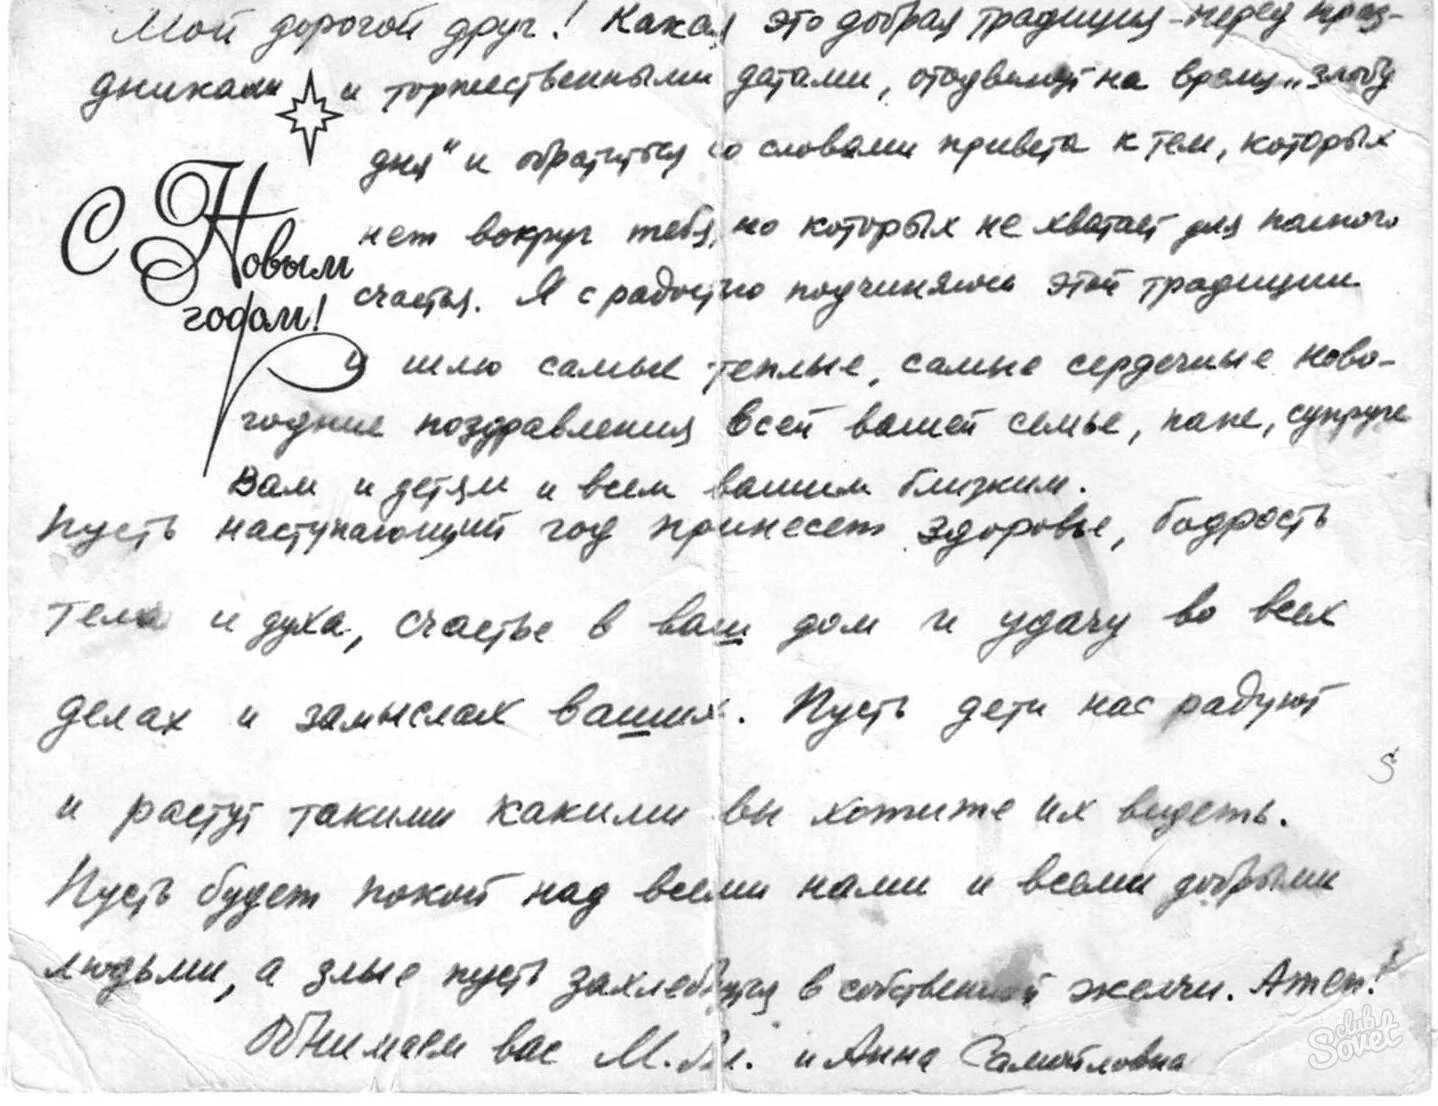 Мой дорогой друг! Какая это добрая традиция - перед праз-
дниками и торжественными датами, отодвинут на время „злобу
дня" и обратиться со словами привета к тем, которых
нет вокруг тебя, но которых не хватает для полного
счастья. Я с радостью подчиняюсь этой традиции
С Новым годом!
и шлю самые теплые, самые сердечные ново-
годние поздравления всей вашей семье, папе, супруге
Вам и детям и всем вашим близким.
Пусть наступающий год принесет здоровье, бодрость
тела и духа, счастье в ваш дом и удачу во всех
делах и замыслах ваших. Пусть дети нас радуют
и растут такими какими вы хотите их видеть.
Пусть будет покой над всеми нами и всеми добрыми
людьми, а злые пусть захлебнутся в собственной желчи. Амен!
Обнимаем вас М. и Анна Самойловна
5
club
Sovet